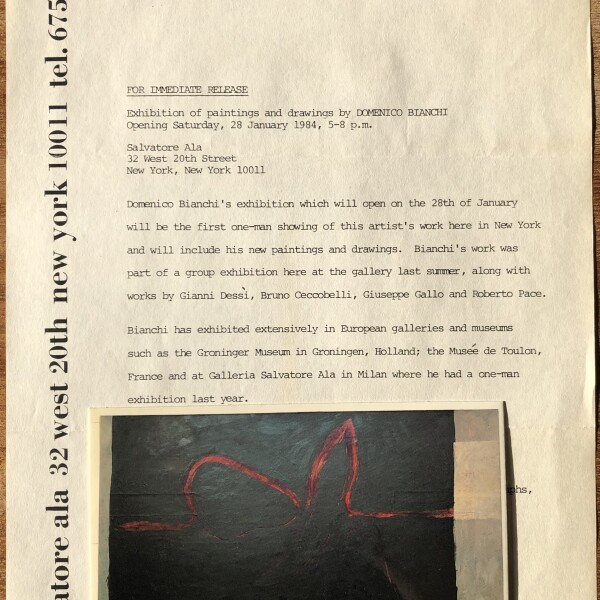 atore ala 32 west 20th new york 10011 tel. 675
FOR IMMEDIATE RELEASE
Exhibition of paintings and drawings by DOMENICO BIANCHI
Opening Saturday, 28 January 1984, 5-8 p.m.
Salvatore Ala
32 West 20th Street
New York, New York 10011
Domenico Bianchi's exhibition which will open on the 28th of January
will be the first one-man showing of this artist's work here in New York
and will include his new paintings and drawings. Bianchi's work was
part of a group exhibition here at the gallery last summer, along with
works by Gianni Dessì, Bruno Ceccobelli, Giuseppe Gallo and Roberto Pace.
Bianchi has exhibited extensively in European galleries and museums
such as the Groninger Museum in Groningen, Holland; the Museé de Toulon,
France and at Galleria Salvatore Ala in Milan where he had a one-man
exhibition last year.
phs,